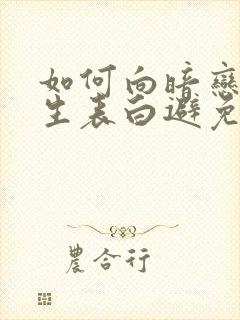 如何向暗戀
生表白避免
農合行